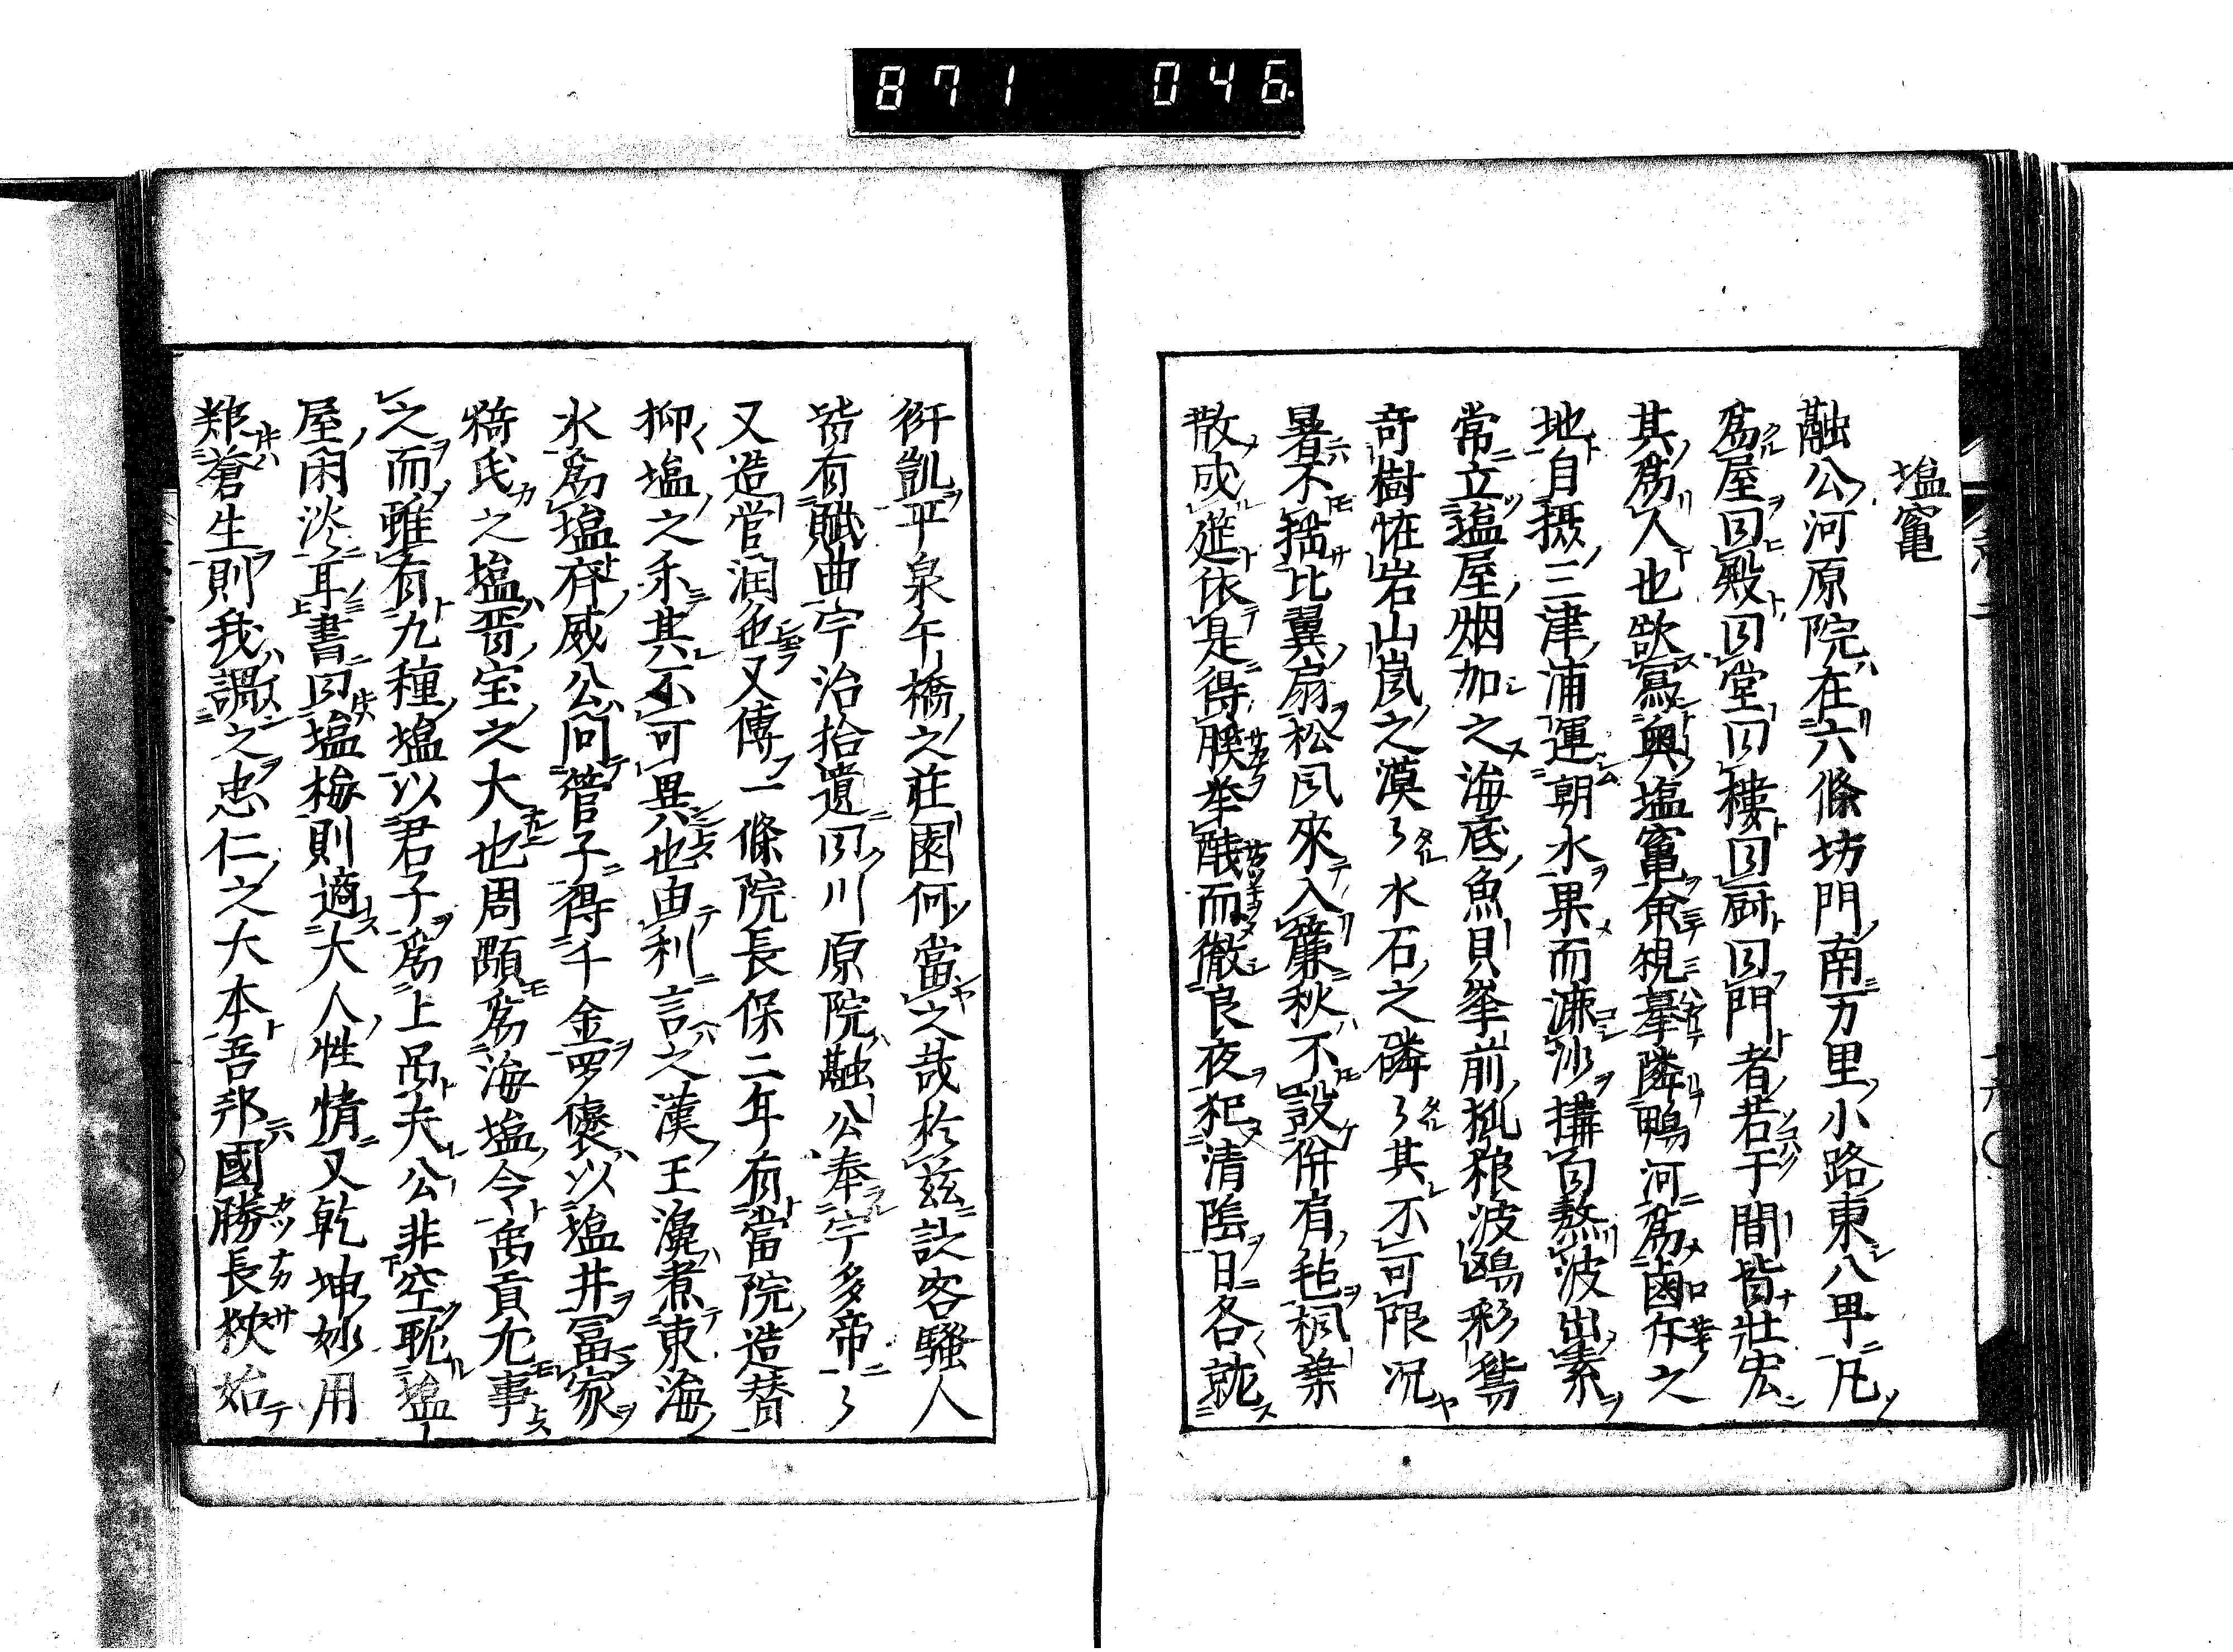 871 046
塩竃
融公河原院在六條坊門南万里小路東八甲凡
為屋曰殿曰堂曰樓曰厨曰門者若干間皆壮宏
其為人也欲寫奥塩竃矣視摹隣鴨河為鹵作之
地自摂三津浦運朝水果而漉沙搆百熬波出素
常立塩屋烟加之海底魚貝峯前波鷗彩鴛
奇樹怪岩山嵐之漠々水石之磷々其不可限况
暑不揺比翼扇松風來入簾秋不設併肩毡桐葉
散成莚依是得朕挙酸而徹良夜犯清陰日各就
衎凱平泉午橋之莊園何當之哉於茲訟客騒人
皆有賦曲宇治拾遺曰川原院融公奉宇多帝々
又造営润色又傳一條院長保二年有當院造替
抑塩之系其不可異也由利言之漢王濞煮東海
水為塩斉威公問管子得千金罗褒以塩井冨家
猗氏之塩晋宝之大也周顒為海塩令禹貢尤事
之而雖有九種塩以君子為上品夫公非空耽塩
屋闲淡耳書曰塩梅則適大人性情又乾坤妙用
蒼生則我調之忠仁之大本吾邦國勝長狹始